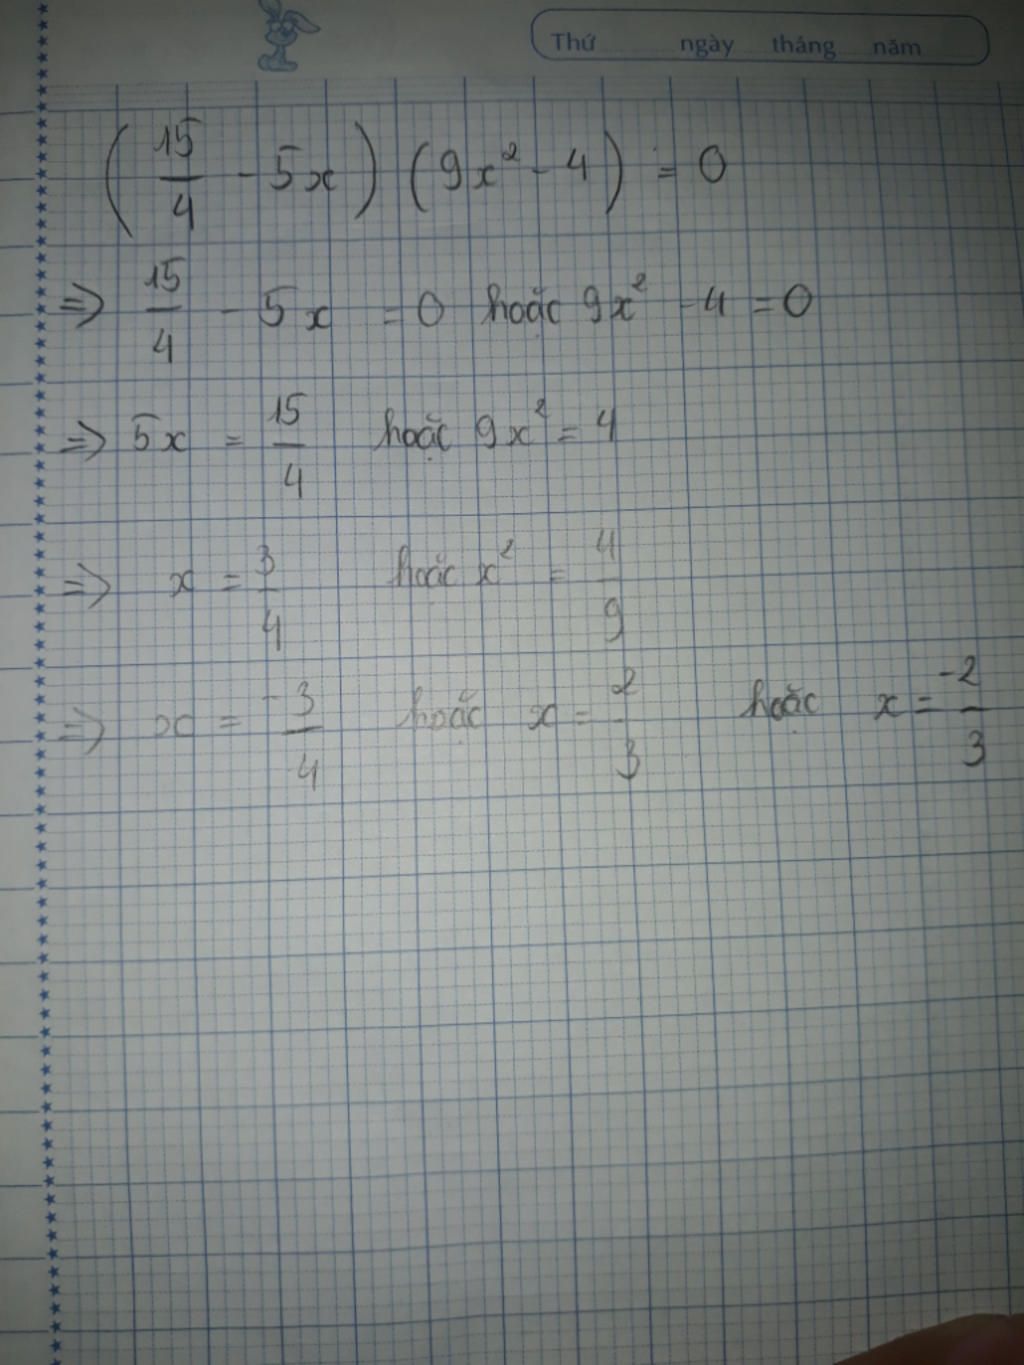 Thứ ngày tháng năm
(15/4 - 5x) (9x² - 4) = 0
=> 15/4 - 5x = 0 hoặc 9x² - 4 = 0
=> 5x = 15/4 hoặc 9x² = 4
=> x = 3/4 hoặc x² = 4/9
=> x = -3/4 hoặc x = 2/3 hoặc x = -2/3